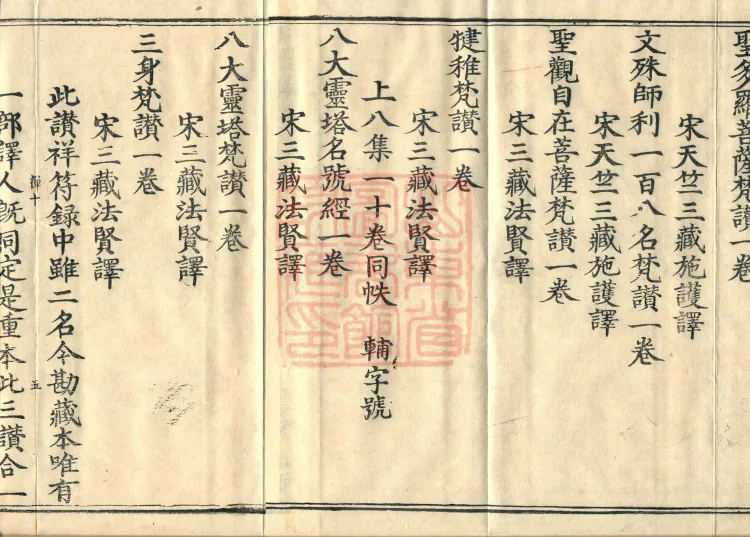 聖多羅菩薩梵讃一卷
宋天竺三藏施護譯
文殊師利一百八名梵讃一卷
宋天竺三藏施護譯
聖觀自在菩薩梵讃一卷
宋三藏法賢譯
犍稚梵讃一卷
宋三藏法賢譯
上八集一十卷同帙 輔字號
八大靈塔名號經一卷
宋三藏法賢譯
八大靈塔梵讃一卷
宋三藏法賢譯
三身梵讃一卷
宋三藏法賢譯
此讃祥符録中雖二名今勘藏本唯有
五
一部譯人既同定是重本此三讃合一